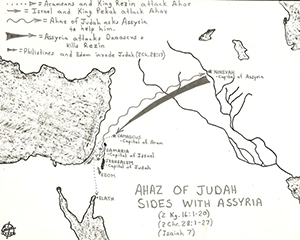 Arameans and King Rezin attack Ahaz
= Israel and King Pekah attack Ahaz
= Ahaz of Judah asks Assyria
to help him.
= Assyria attacks Damascus &
kills Rezin
= Philistines and Edom invade Judah (2 Chr. 28:17)
NINEVAH
-Capital of Assyria
DAMASCUS
-Capital of Aram
SAMARIA
-Capital of Israel
JERUSALEM
-Capital of Judah
EDOM
ELATH
AHAZ OF JUDAH
SIDES WITH ASSYRIA
(2 Kg. 16:1-20)
(2 Chr. 28:1-27)
(Isaiah 7)